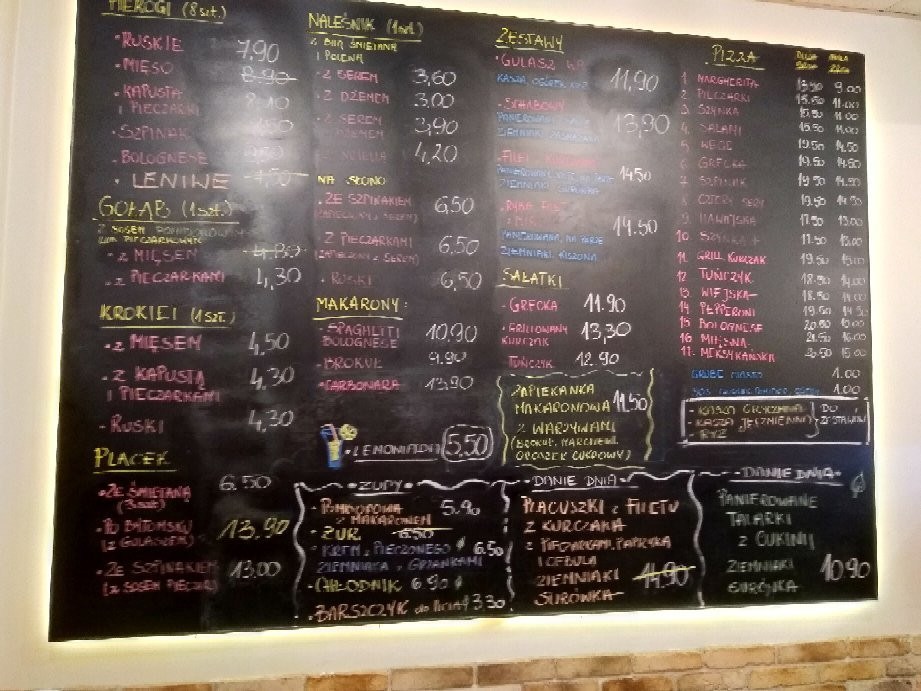 PIEROGI (8szt.)
• RUSKIE 7,90
• MIĘSO 8,90
• KAPUSTA
I PIECZARKI
• SZPINAK
• BOLOGNESE
• LENIWE 7,50
GOŁĄB (1szt.)
• Z MIĘSEM
• Z PIECZARKAMI 4,30
KROKIET (1szt.)
• Z MIĘSEM 4,50
• Z KAPUSTĄ 4,30
I PIECZARKAMI
• RUSKI 4,30
PLACEK
• ZE ŚMIETANĄ 6.50
(3szt)
• PO BITOMSKU 13.90
(Z GULASZEM)
• ZE SZPINAKIEM 13.00
(Z SOSEM PIECZAR.)
NALEŚNIK (1szt.)
Z BITĄ ŚMIETANĄ
I POLEWĄ
• Z SEREM 3,60
• Z DŻEMEM 3,00
• Z SEREM 3,90
I DŻEMEM
• Z NUTELLĄ 4,20
NA SŁONO
• ZE SZPINAKIEM 6,50
(ZAPIECKANY Z SEREM)
• Z PIECZARKAMI 6,50
(ZAPIECKANY Z SEREM)
• RUSKI 6,50
MAKARONY:
• SPAGHETTI 10,90
BOLOGNESE
• BROKUŁ 9.90
• CARBONARA 13,90
• LEMONIADA 5,50
ZESTAWY
• GULASZ WP. 11,90
• SCHABOWY 13,90
PANIEROWANY
• FILET Z KURCZAKA 14,50
ZIEMNIAKI, SURÓWKA
• RYBA FILET 14.50
Z MIRUNY
PANIEROWANA, NA PARZE
ZIEMNIAKI, KISZONA
SAŁATKI
• GRECKA 11.90
• GRILLOWANY 13,30
KURCZAK
• TUŃCZYK 12.90
ZAPIEKANKA
MAKARONOWA 11,50
Z WARZYWAMI
(BROKUŁ, MARCHEW,
GROSZEK CUKROWY)
PIZZA
1 MARGHERITA 13.90 9.00
2 PIECZARKI 15.50 11.00
3 SZYNKA 15.50 11.00
4 SALAMI 15.50 11.00
5 WEGE 19.50 14.50
6 GRECKA 19.50 14.50
7 SZPINAK 19.50 14.50
8 CZTERY SERY 19.50 14.50
9 HAWAJSKA 17.50 13.00
10. SZYNKA + 17.50 13.00
11 GRILL KURCZAK 19.50 15.00
12 TUŃCZYK 18.50 14.00
13 WIEJSKA 18.50 14.00
14 PEPPERONI 19.50 14.50
15 BOLOGNESE 20.50 15.00
16 MIĘSNA 21.50 16.00
17. MEKSYKAŃSKA 20.50 15.00
GRUBE CIASTO 1.00
1.00
- KASZA GRYCZANA
- KASZA JĘCZMIENNA
- RYŻ
DO
ZESTAWÓW
ZUPY
• POMIDOROWA 5.90
Z MAKARONEM
• ŻUR 6.50
• KREM Z PIECZONEGO 6.50
ZIEMNIAKA Z GRZANKAMI
• CHŁODNIK 6.90
• BARSZCZYK do picia 3.30
DANIE DNIA
PLACUSZKI Z FILETU
Z KURCZAKA
Z PIECZARKAMI, PAPRYKĄ
I CEBULĄ
ZIEMNIAKI 14.90
SURÓWKA
DANIE DNIA
PANIEROWANE
TALARKI
Z CUKINII
ZIEMNIAKI 10.90
SURÓWKA